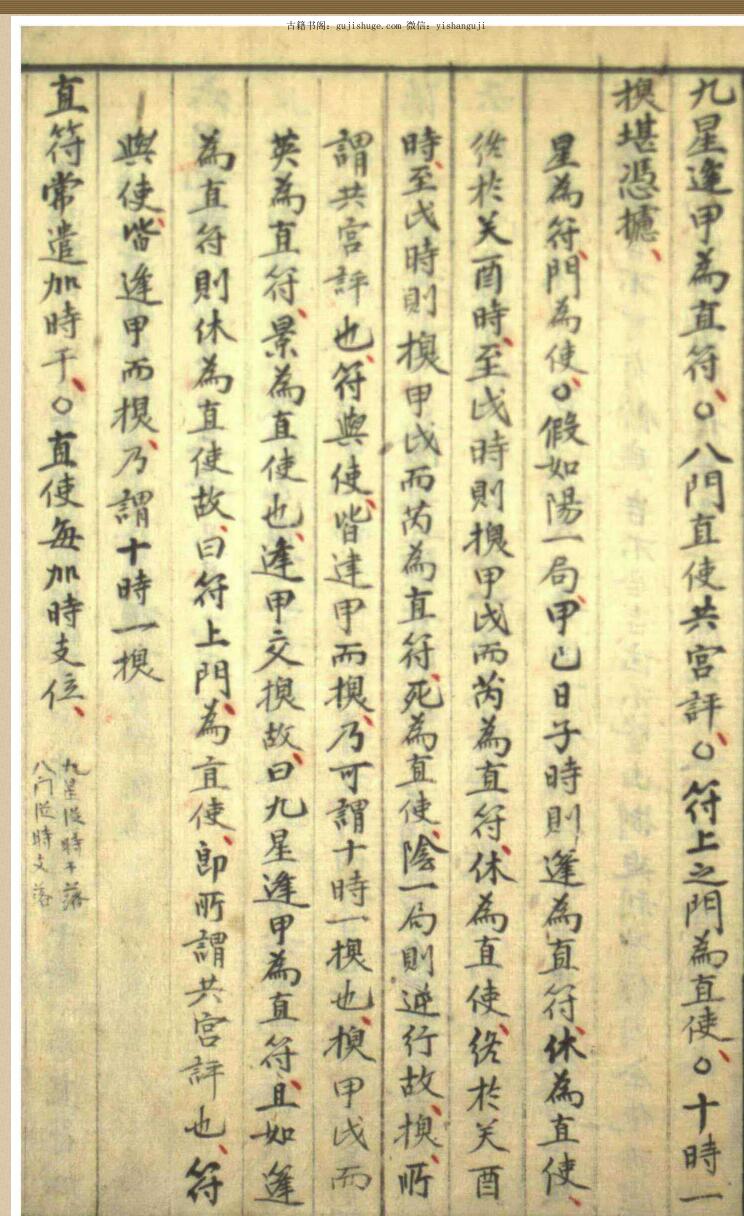 古籍书阁：gujishuge.com 微信：yishanguji
九星逢甲為直符、○八門直使共宮評、○符上之門為直使、○十時一
換堪憑據、
星為符、門為使、○假如陽一局、甲己日子時則逢為直符、休為直使、
終於癸酉時、至戌時則換甲戌而芮為直符、休為直使、終於癸酉
時、至戌時則換甲戌而芮為直符、死為直使、陰一局則逆行故、換、所
謂共宮評也、符與使、皆逢甲而換、乃可謂十時一換也、換甲戌而
英為直符、景為直使也、逢甲交換故、曰九星逢甲為直符、且如逢
為直符則休為直使故、曰符上門、為直使、即所謂共宮評也、符
與使、皆逢甲而換、乃謂十時一換
直符常遣加時干、○直使每加時支位、
九星從時干落
八门從時支落